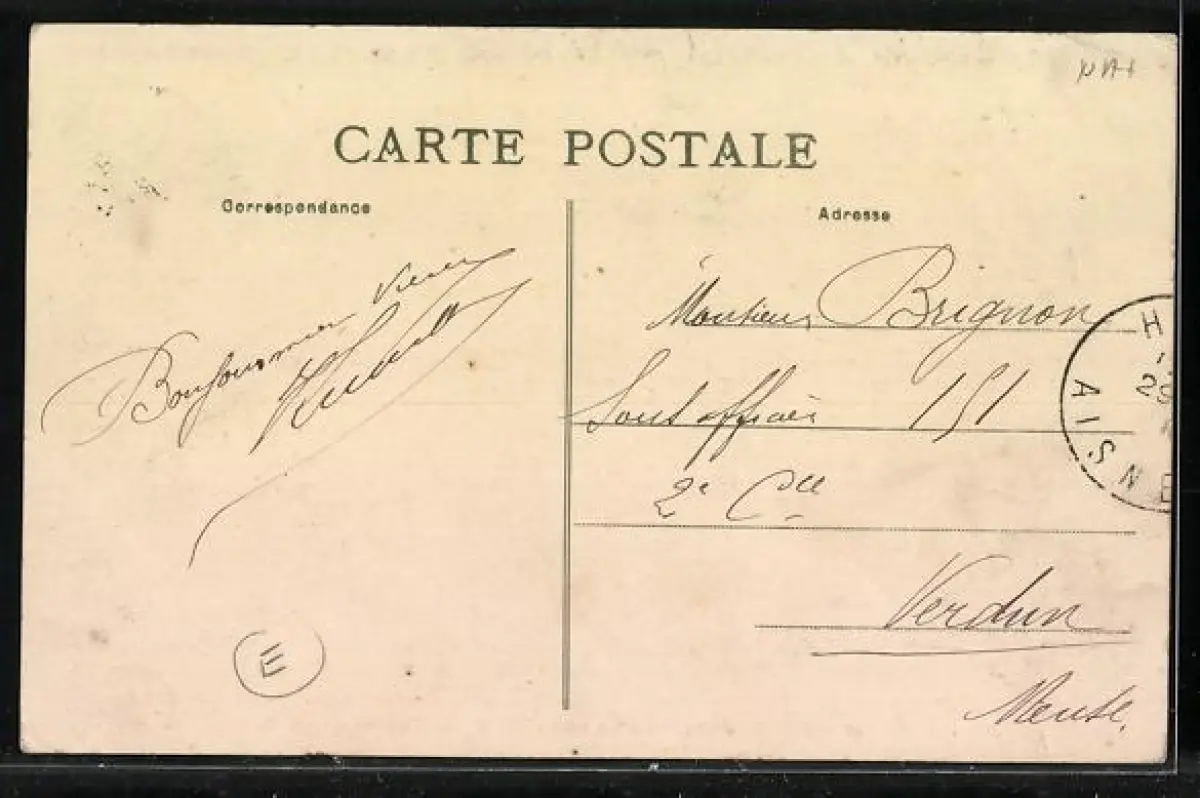 CARTE POSTALE
Correspondance
Adresse
Bonjour mon vieux
Monsieur Brignon
Sous officier 151
2e Cie
Verdun
Meuse.
H
29
AISNE
E